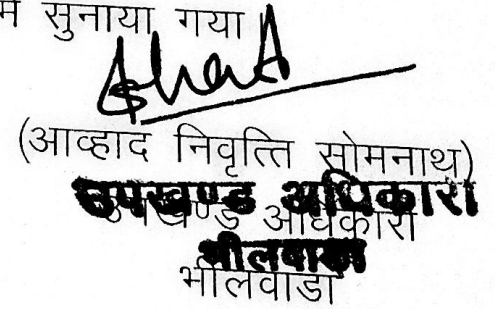 म सुनाया गया।
(आव्हाद निवृत्ति सोमनाथ)
उपखण्ड अधिकारी
उपखण्ड अधिकारी
भीलवाडा
भीलवाडा